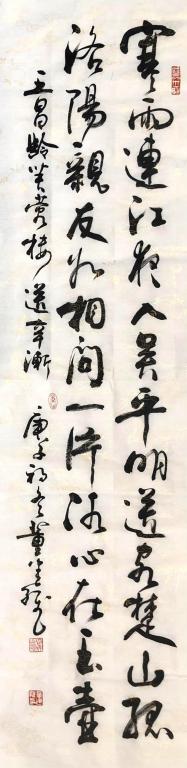 寒雨連江夜入吴平明送客楚山孤
洛陽親友如相問一片冰心在玉壶
王昌龄芙蓉楼送辛渐
庚子初冬董